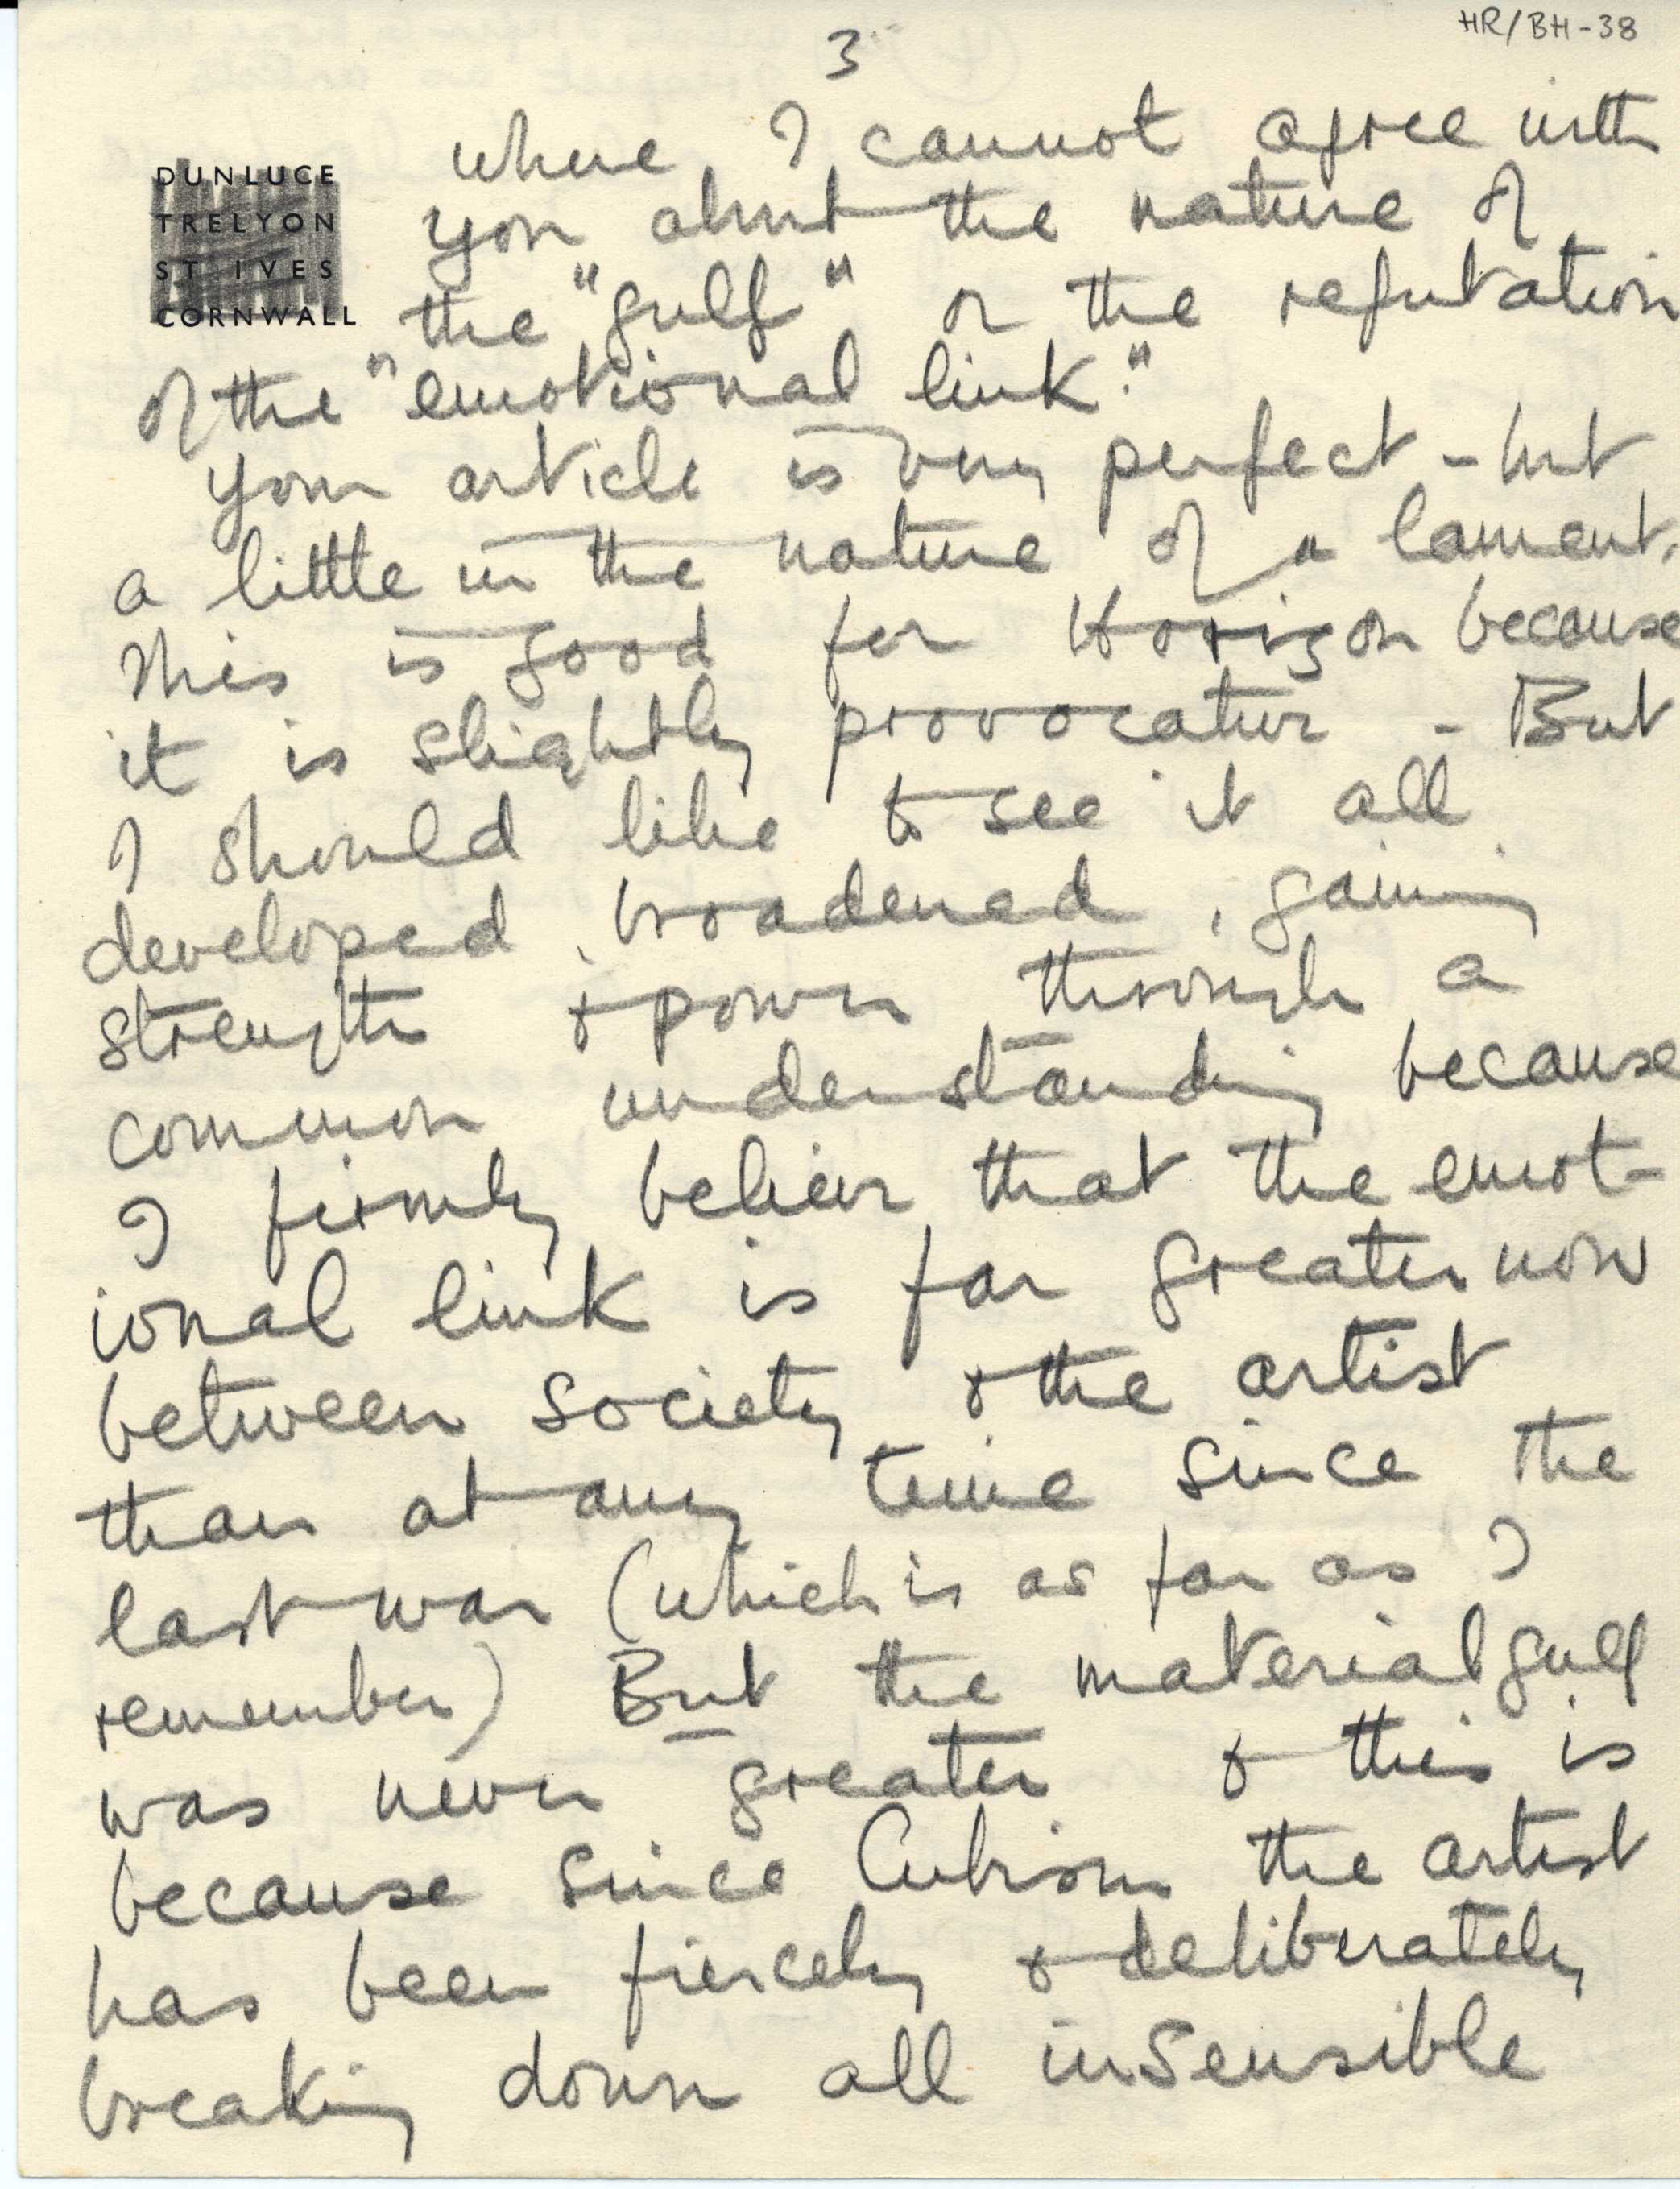 HR/BH-38
3
DUNLUCE
TRELYON
ST IVES
CORNWALL
where I cannot agree with
you about the nature of
the "gulf" or the refutation
of the "emotional link."
Your article is very perfect - but
a little in the nature of a lament.
This is good for Horizon because
it is slightly provocative - But
I should like to see it all
developed, broadened, gaining
strength & power through a
common understanding because
I firmly believe that the emot-
ional link is far greater now
between society & the artist
than at any time since the
last war (which is as far as I
remember) But the material gulf
was never greater & this is
because since Cubism the artist
has been fiercely & deliberately
breaking down all insensible